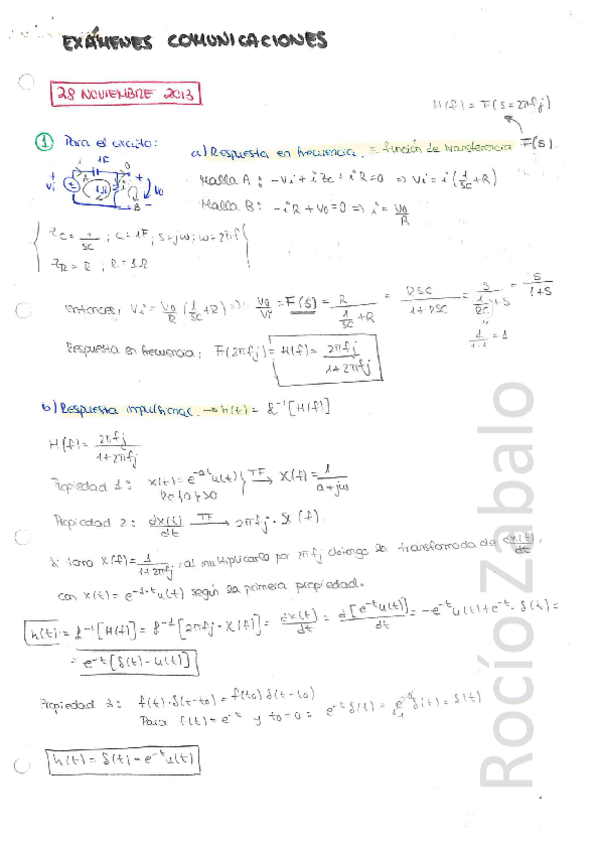 EXÁMENES COMUNICACIONES
28 NOVIEMBRE 2013
H(f) = F(s=2πfj)
① Para el circuito:
a) Respuesta en frecuencia. = función de transferencia F(s).
1F
A
Vi
1Ω
i
B
Vo
Malla A: -Vi + i Zc + iR=0 => Vi = i(1/sc + R)
Malla B: -iR + Vo = 0 => i = Vo/R
Zc = 1/sc ; C = 1F ; s=jω ; ω=2πf
ZR = R ; R = 1Ω
Entonces, Vi = Vo/R (1/sc + R) => Vo/Vi = F(s) = R/(1/sc + R) = RSC/(1+RSC) = s/(1/RC + s) = s/(1+s)
1/1·1 = 1
Respuesta en frecuencia: F(2πfj) = H(f) = 2πfj/(1+2πfj)
b) Respuesta impulsional. → h(t) = F⁻¹[H(f)]
H(f) = 2πfj/(1+2πfj)
Propiedad 1: x(t) = e^-at u(t) Re{a}>0 } TF→ X(f) = 1/(a+jω)
Propiedad 2: dx(t)/dt TF→ 2πfj · X(f).
Como X(f) = 1/(1+2πfj), al multiplicarlo por 2πfj obtengo la transformada de dx(t)/dt,
con x(t) = e^-1·t u(t) según la primera propiedad.
h(t) = F⁻¹[H(f)] = F⁻¹[2πfj · X(f)] = dx(t)/dt = d[e^-t u(t)]/dt = -e^-t u(t) + e^-t · δ(t) =
= e^-t [δ(t) - u(t)]
Propiedad 3: f(t)·δ(t-to) = f(to) δ(t-to)
Para f(t) = e^-t y to=0: e^-t δ(t) = e^-0 δ(t) = δ(t)
h(t) = δ(t) - e^-t u(t)
Rocío Zabalo